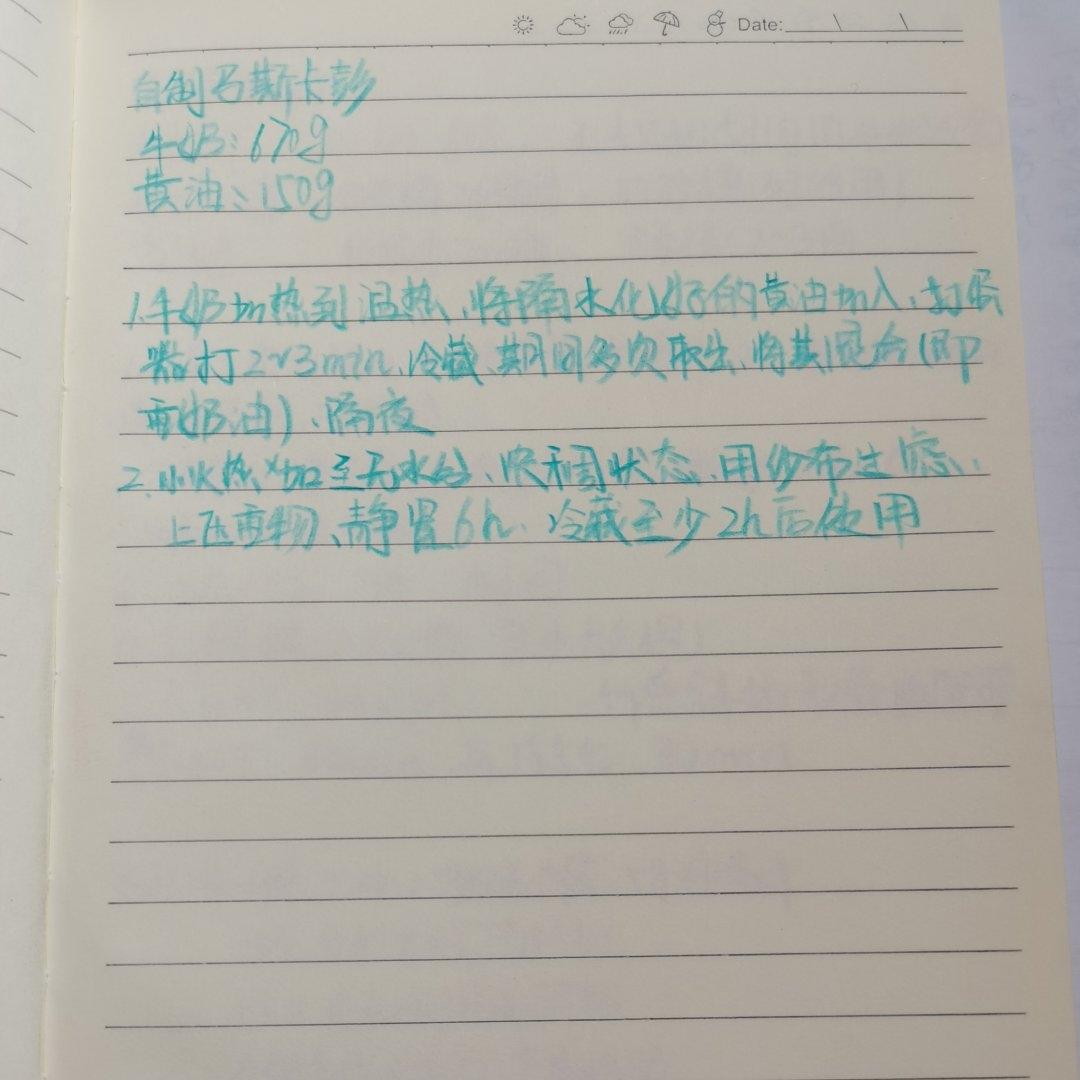 Date:
自制马斯卡彭
牛奶：670g
黄油：150g
1.牛奶加热到温热、将隔水化好的黄油加入、打蛋
器打2~3min、冷藏、期间多次取出、将其混合（即
重奶油）、隔夜
2.小火热加至无水台、浓稠状态、用纱布过滤、
上压重物、静置6h、冷藏至少2h后使用